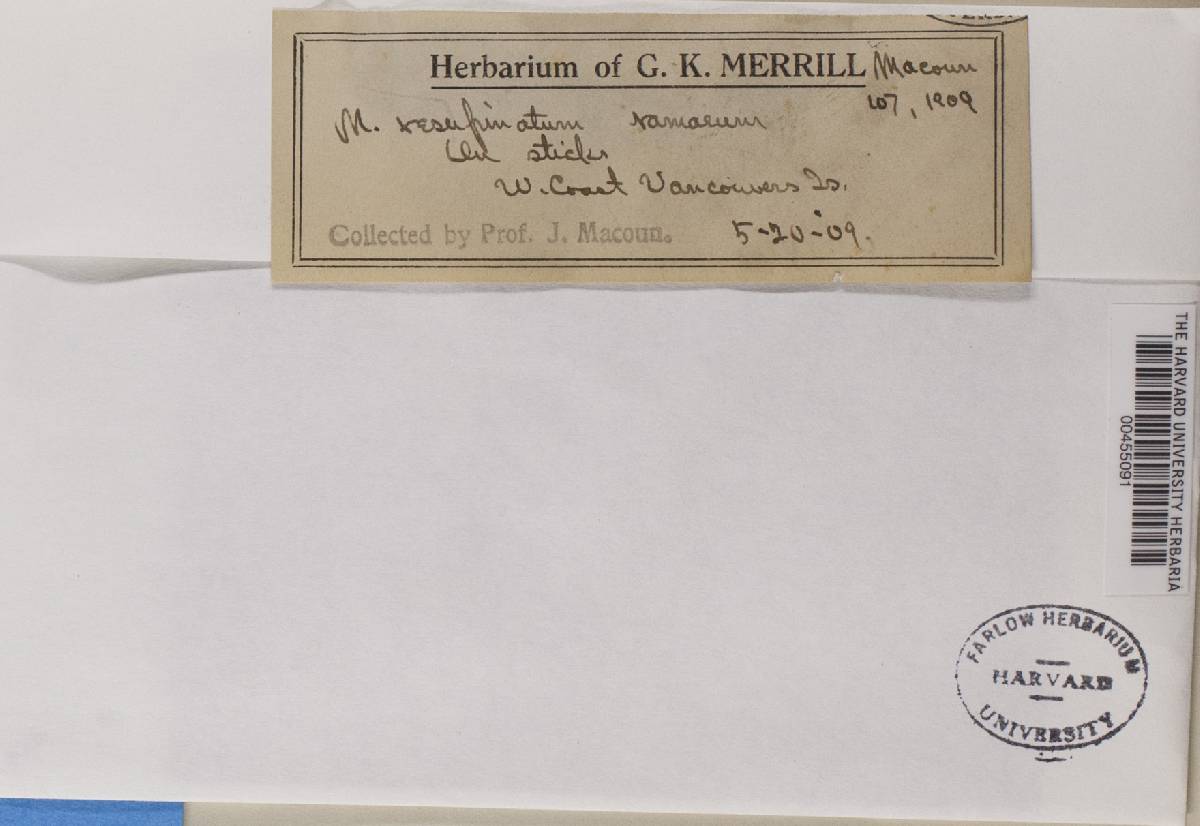 Herbarium of G. K. MERRILL Macoun
107, 1909
M. resupinatum ramaeum
On sticks
W. Coast Vancouvers Is.
Collected by Prof. J. Macoun. 5-20-09.
THE HARVARD UNIVERSITY HERBARIA
00455091
FARLOW HERBARIUM
HARVARD
UNIVERSITY